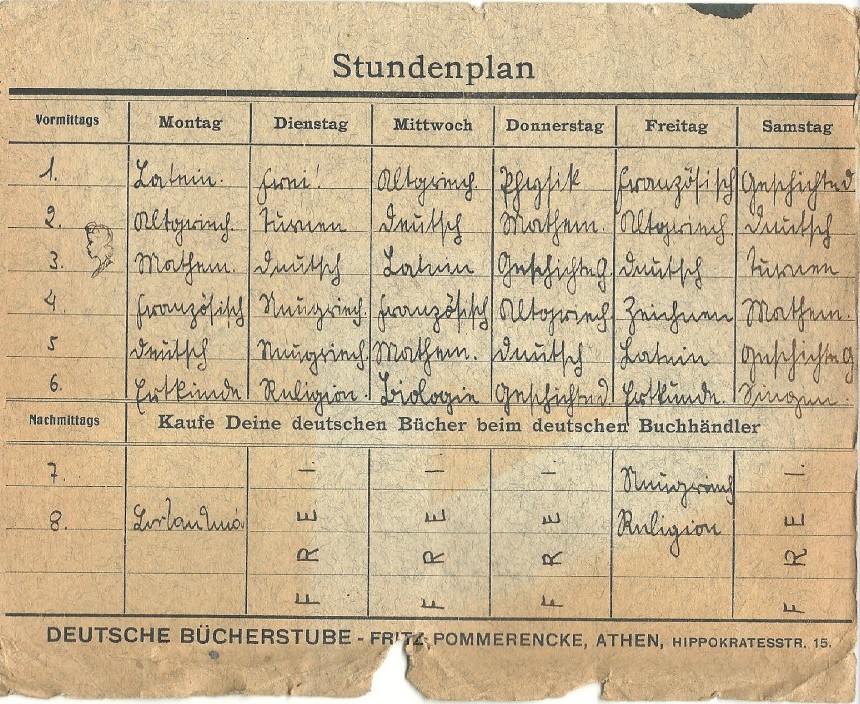 Stundenplan
Vormittags Montag Dienstag Mittwoch Donnerstag Freitag Samstag
1. Latein. frei! Altgriech. Physik Französisch Geschichte d
2. Altgriech. Turnen Deutsch Mathem. Altgriech. Deutsch
3. Mathem. Deutsch Latein Geschichte g. Deutsch Turnen
4. Französisch Neugriech. Französisch Altgriech. Zeichnen Mathem.
5 Deutsch Neugriech. Mathem. Deutsch Latein Geschichte G
6. Ertkunde Religion. Biologie Geschichte d Ertkunde. Singen.
Nachmittags Kaufe Deine deutschen Bücher beim deutschen Buchhändler
7. Neugriech
8. FREI! FREI! FREI! Religion FREI!
DEUTSCHE BÜCHERSTUBE - FRITZ POMMERENCKE, ATHEN, HIPPOKRATESSTR. 15.